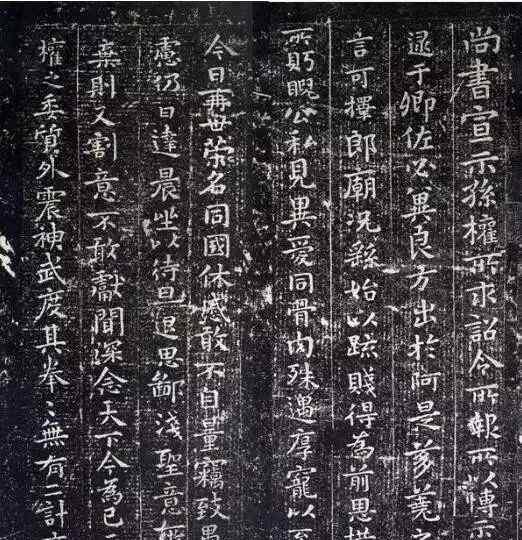 尚書宣示孫權所求詔令所報所以博示
逮于卿佐必冀良方出於阿是芻蕘之
言可擇郎廟況繇始以疏賤得為前恩橫
所眄睨公私見異愛同骨肉殊遇厚寵以至
今日再世榮名同國休慼敢不自量竊致愚
慮仍日達晨坐以待旦退思鄙淺聖意所
棄則又割意不敢獻聞深念天下今為已
權之委質外震神武度其拳〻無有二計